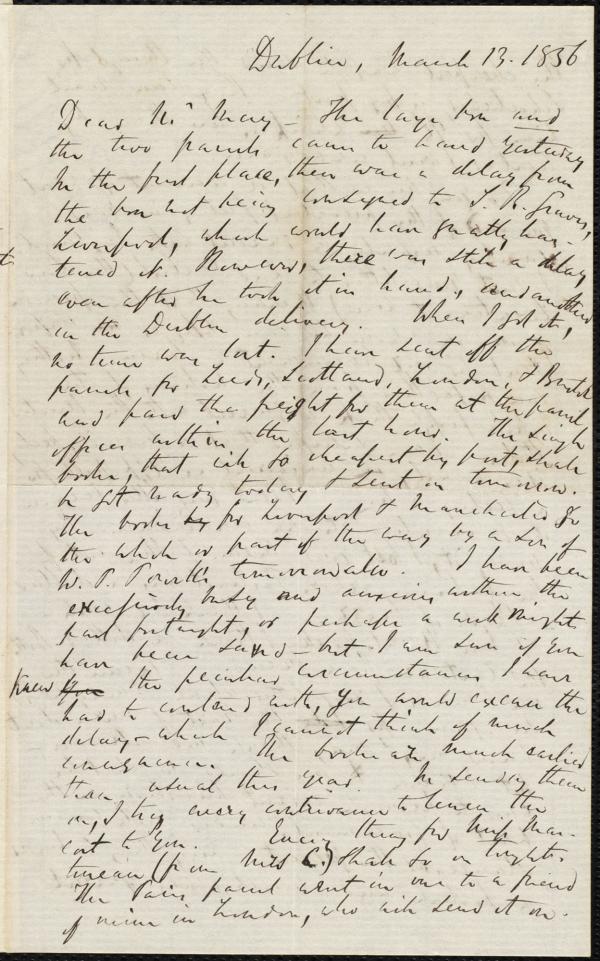 Dublin, March 13. 1856
Dear Mr May - The large box and
the two parcels came to hand yesterday
In the first place, there was a delay from
the box not being consigned to S. R. Graves,
Liverpool, which would have greatly has-
tened it. However, there was still a delay
even after he took it in hand, and another
in the Dublin delivery. When I got it,
no time was lost. I have sent off the
parcels for Leeds, Scotland, London, & Bristol
and paid the freight for them at the parcel
offices within the last hour. The single
books, that will go cheapest by post, shall
be got ready today & sent on tomorrow.
The books for Liverpool & Manchester go
the whole or part of the way by a son of
tomorrow also. I have been
excessively busy and anxious within the
past fortnight, or perhaps a week might
have been saved - but I am sure if you
knew the peculiar circumstances I have
had to contend with, you would excuse the
delay - which I cannot think of much
consequence. The books are much earlier
than usual this year. In sending them
on, I try every contrivance to lessen the
cost to you. Every thing for Miss Mar-
tineau (from Mrs C.) shall go on tonight.
The Paris parcel went in one to a friend
of mine in London, who will send it on.